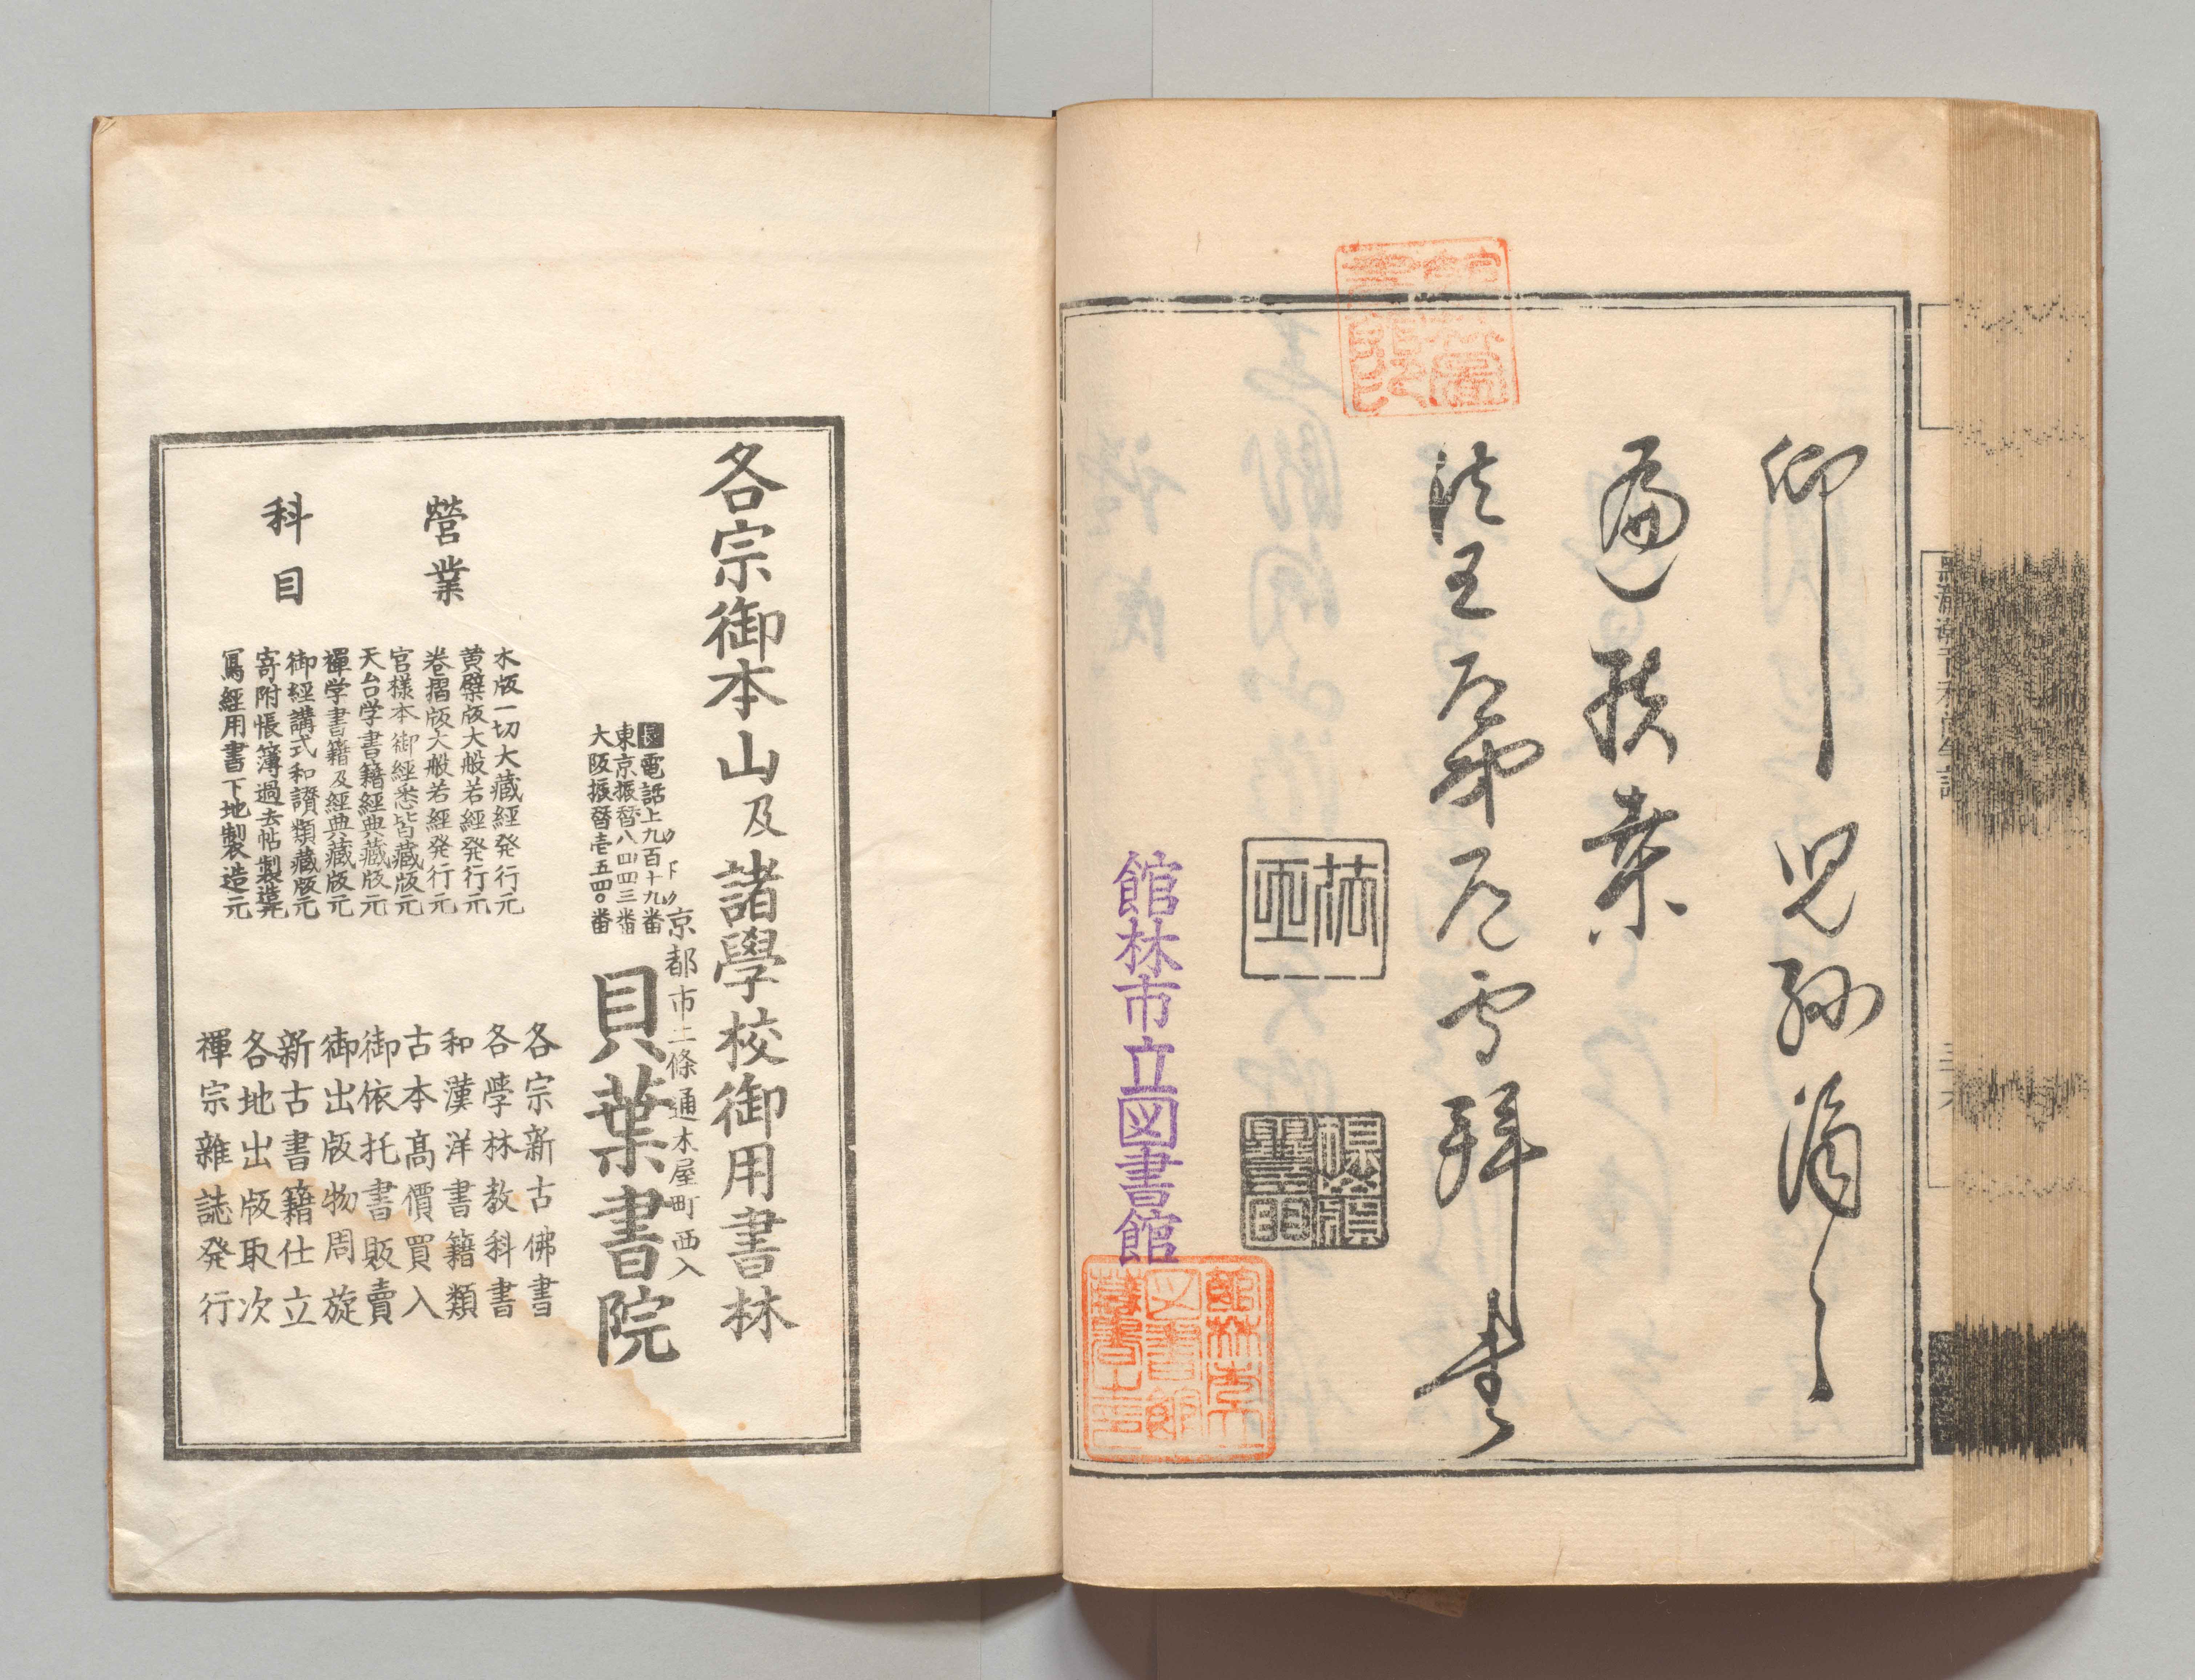 仰児孫満〻
遍扶桑
法王
拜書
館林市立図書館
館林市立
図書館
蔵書之印
各宗御本山及諸學校御用書林
京都市二條通木屋町西入
貝葉書院
長電話上九百十九番
東京振替八四四三番
大阪振替壱五四〇番
營業
科目
木版一切大藏經発行元
黄檗版大般若經発行元
卷摺版大般若經発行元
官樣本御經悉皆藏版元
天台学書籍經典藏版元
禪学書籍及經典藏版元
御經講式和讃類藏版元
寄附帳簿過去帖製造元
寫經用書下地製造元
各宗新古佛書
各學林教科書
和漢洋書籍類
古本高價買入
御依托書販賣
御出版物周旋
新古書籍仕立
各地出版取次
禪宗雜誌発行